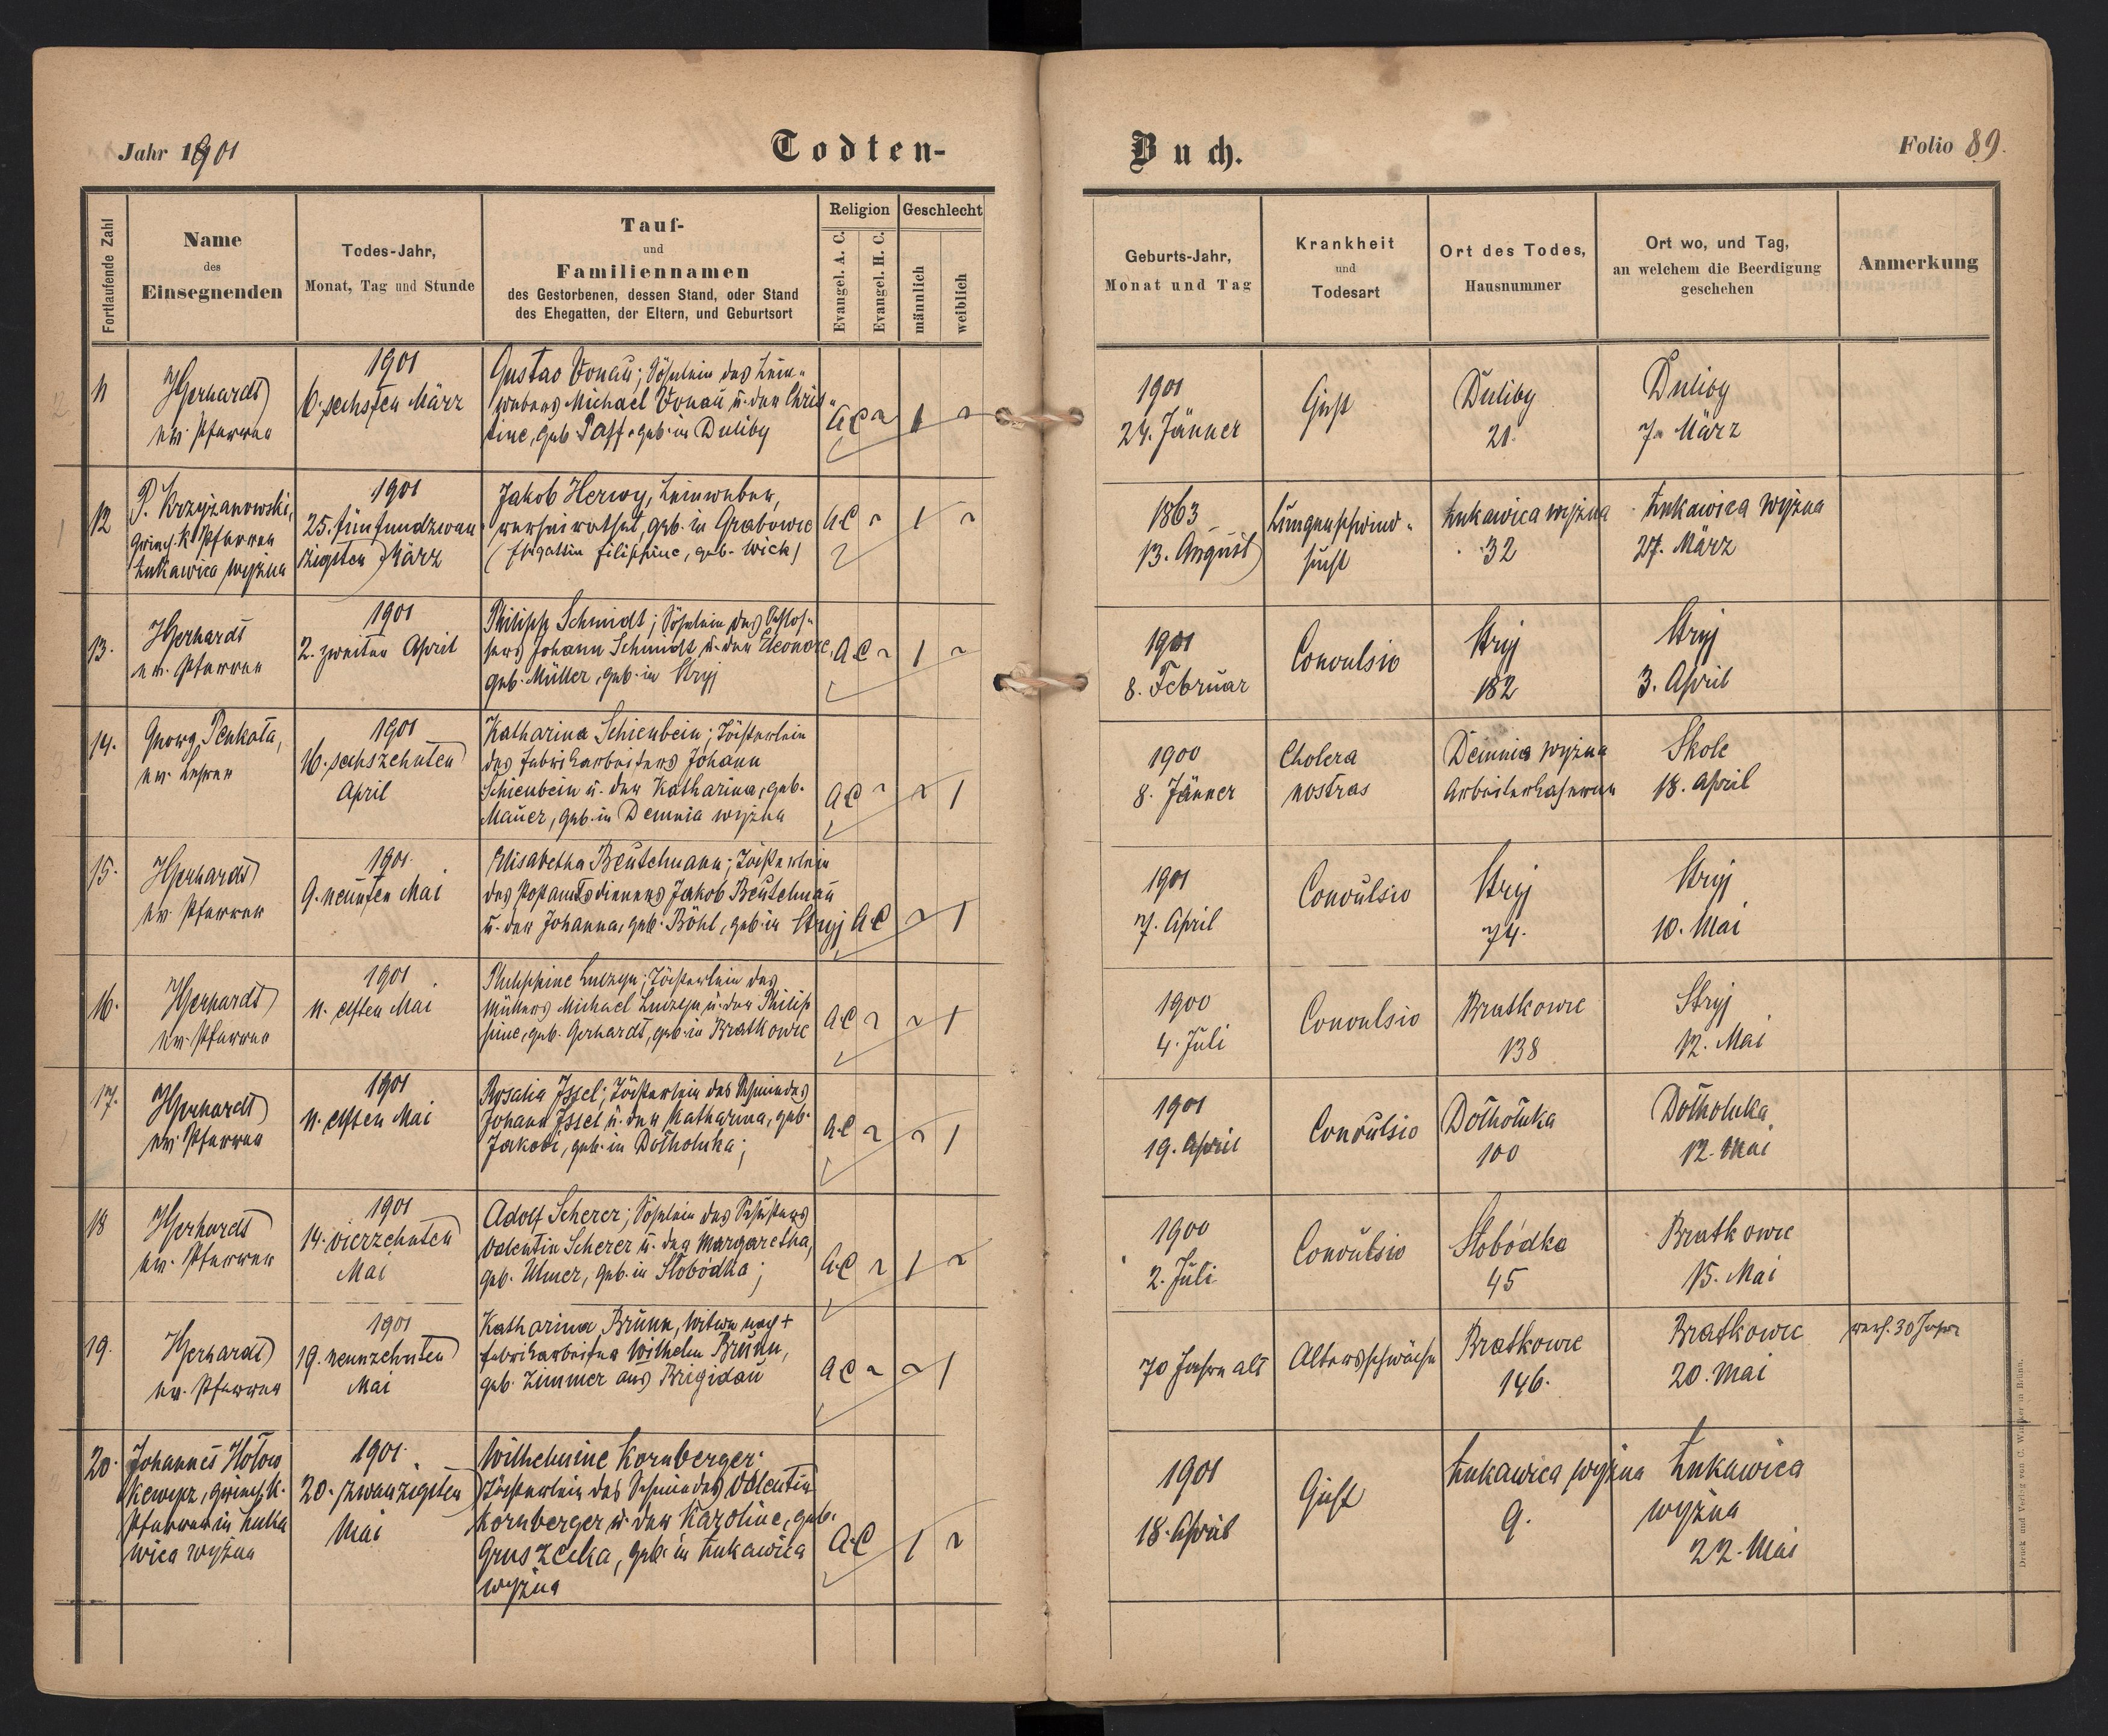 Jahr 1901
Todten-
Buch.
Folio 89.
Fortlaufende Zahl
Name
des
Einsegnenden
Todes-Jahr,
Monat, Tag und Stunde
Tauf-
und
Familiennamen
des Gestorbenen, dessen Stand, oder Stand
des Ehegatten, der Eltern, und Geburtsort
Religion
Evangel. A. C.
Evangel. H. C.
Geschlecht
männlich
weiblich
Geburts-Jahr,
Monat und Tag
Krankheit
und
Todesart
Ort des Todes,
Hausnummer
Ort wo, und Tag,
an welchem die Beerdigung
geschehen
Anmerkung
11
HGerhardt
ev. Pfarrer
1901
6. sechsten März
Gustav Vonau; Söhnlein des Lein-
webers Michael Vonau u. der Chris-
tine, geb. Paff, geb. in Duliby
A C ~ 1 ~
1901
24. Jänner
Gicht
Duliby
21.
Duliby
7. März
12
P. Krzyżanowski,
griech. k. Pfarrer
Łukawica wyżna
1901
25. fünfundzwan
zigsten März
Jakob Herwy, Leinweber,
verheirathet, geb. in Grabowce
(Ehegattin Filippine, geb. Wick)
A C ~ 1 ~
1863
13. August
Lungenschwind-
sucht
Łukawica wyżna
32
Łukawica wyżna
27. März
13.
HGerhardt
ev. Pfarrer
1901
2. zweiten April
Philipp Schmidt; Söhnlein des Schlos-
sers Johann Schmidt u. der Eleonore,
geb. Müller, geb. in Stryj
A C ~ 1 ~
1901
8. Februar
Convulsio
Stryj
182
Stryj
3. April
14.
Georg Penkala,
ev. Lehrer
1901
16. sechszehnten
April
Katharina Schienbein; Töchterlein
des Fabrikarbeiters Johann
Schienbein u. der Katharina, geb.
Mauer, geb. in Demnia wyżna
A C ~ ~ 1
1900
8. Jänner
Cholera
nostras
Demnia wyżna
Arbeiterkaserne
Skole
18. April
15.
HGerhardt
ev. Pfarrer
1901.
9. neunten Mai
Elisabetha Beutelmann; Töchterlein
des Postamtsdieners Jakob Beutelmann
u. der Johanna, geb. Böhl, geb. in Stryj
A C ~ 1
1901
7. April
Convulsio
Stryj
74.
Stryj
10. Mai
16.
HGerhardt
ev. Pfarrer
1901
11. elften Mai
Philippine; Töchterlein des
Müllers Michael u. der Philip
pine, geb. Gerhardt, geb. in Bratkowce
A C ~ ~ 1
1900
4. Juli
Convulsio
Bratkowce
138
Stryj
12. Mai
17.
HGerhardt
ev. Pfarrer
1901
11. elften Mai
Rosalia Issel; Töchterlein des Schmiedes
Johann Issel u. der Katharina, geb.
Jakobi, geb. in Dołholuka;
A C ~ ~ 1
1901
19. April
Convulsio
Dołholuka
100
Dołholuka
12. Mai
18
HGerhardt
ev. Pfarrer
1901
14. vierzehnten
Mai
Adolf Scherer; Söhnlein des Schusters
Valentin Scherer u. der Margaretha,
geb. Ulmer, geb. in Słobódka;
A.C ~ 1 ~
1900
2. Juli
Convulsio
Słobódka
45
Bratkowce
15. Mai
19.
HGerhardt
ev. Pfarrer
1901
19. neunzehnten
Mai
Katharina Brunn, Witwe nach +
Fabrikarbeiter Wilhelm Brunn,
geb. Zimmer aus Brigidau
A C ~ ~ 1
70 Jahre alt
Altersschwäche
Bratkowce
146.
Bratkowce
20. Mai
30 Jahre
20.
Johannes Hołow
kewycz, griech. k.
Pfarrer in Łuka
wica wyżna
1901.
20. zwanzigsten
Mai
Wilhelmine Kornberger;
Töchterlein des Schmiedes Valentin
Kornberger u. der Karoline, geb.
Gruszecka, geb. in Łukawica
wyżna
A.C 1 ~
1901
18. April
Gicht
Łukawica wyżna
9.
Łukawica
wyżna
22. Mai
Druck und Verlag von C. Winiker in Brünn.